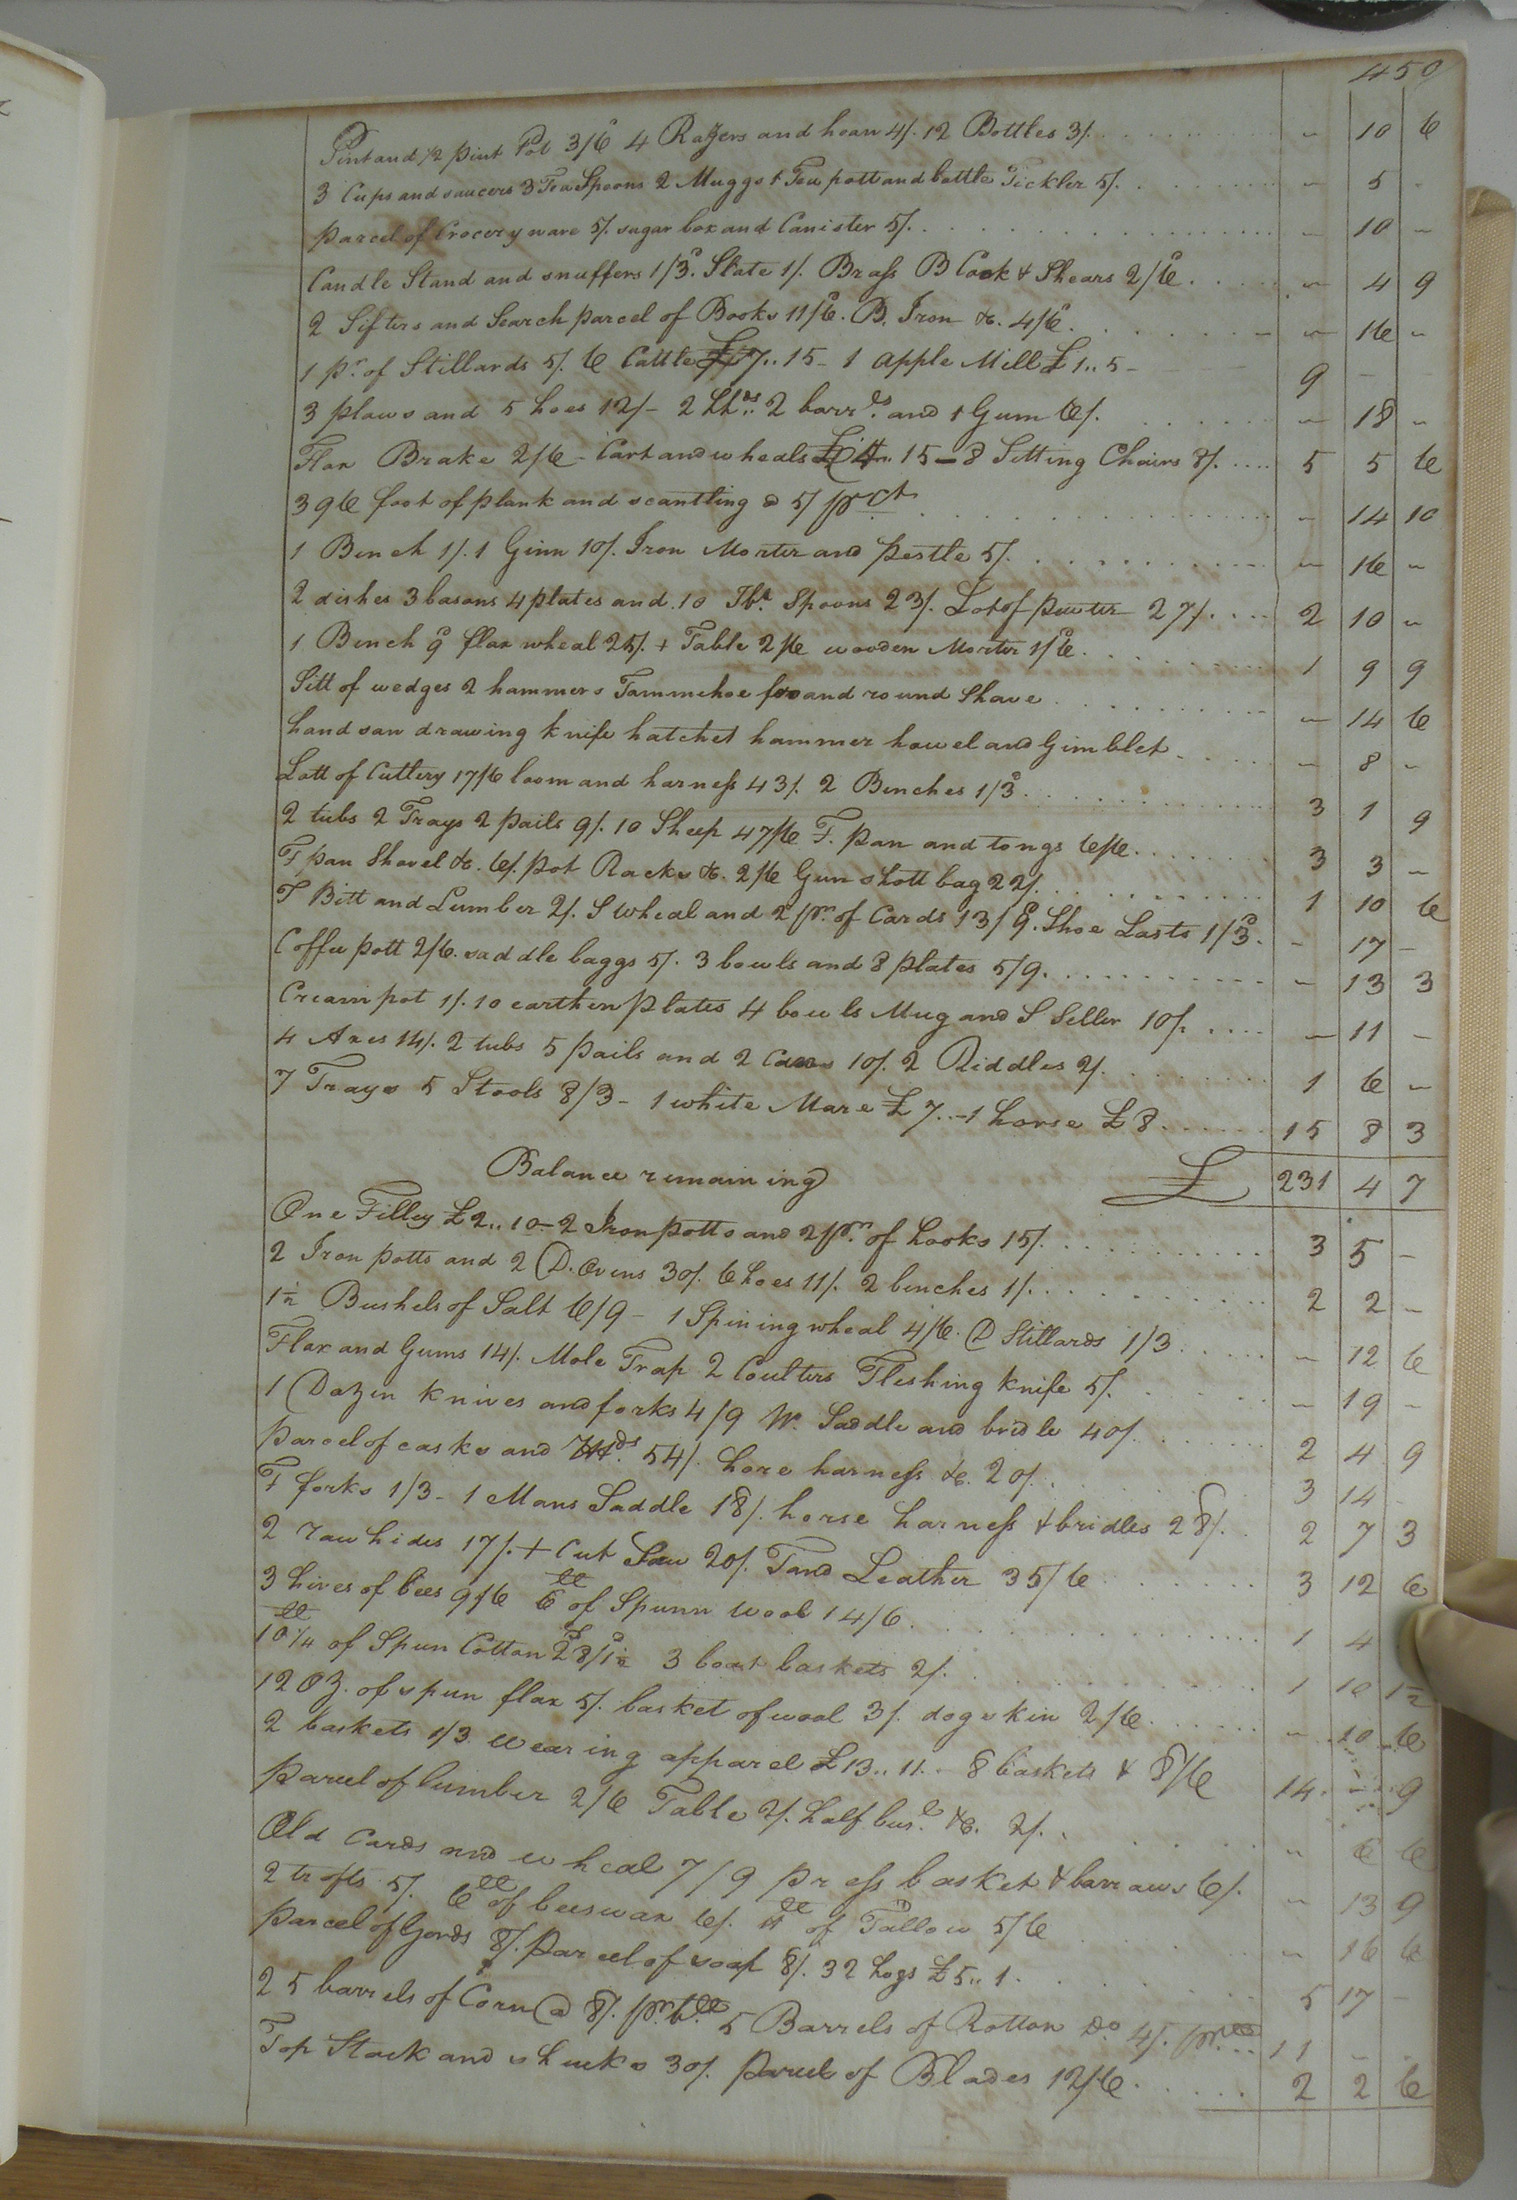 450
Pint and ½ pint Pot 3/6 4 Razers and hoan 4/. 12 Bottles 3/. - 10 6
3 Cups and saucers 3 Tea Spoons 2 Muggs 1 Tea pott and bottle Tickler 5/. - 5 -
parcel of Crocery ware 5/. sugar box and Canister 5/. - 10 -
Candle Stand and snuffers 1/3. Slate 1/. Brass B Cock & Shears 2/6 - 4 9
2 Sifters and Search parcel of Books 11/6. B. Iron &c. 4/6. - 16 -
1 pr. of Stillards 5/. 6 Cattle £7,,15- 1 apple Mill £1,,5- 9 - -
3 plaws and 5 hoes 12/- 2 hhds. 2 barrls. and 1 Gum 6/. - 18 -
Flax Brake 2/6 - Cart and wheals £4,,15 - 8 Sitting Chairs 8/. 5 5 6
396 foot of plank and scantling @ 5/ pr Ct - 14 10
1 Bench 1/. 1 Ginn 10/. Iron Morter and pestle 5/. - 16 -
2 dishes 3 basons 4 plates and 10 Tbl. Spoons 23/. Lot of pewter 27/. 2 10 -
1 Bench 9 flax wheal 25/. 1 Table 2/6 wooden Morter 1/6. 1 9 9
Sitt of wedges 2 hammers Tammehoe froo and round Shave - 14 6
hand saw drawing knife hatchet hammer howel and Gimblet - 8 -
Lott of Cutlery 17/6 loom and harness 43/. 2 Benches 1/3. 3 1 9
2 tubs 2 Trays 2 pails 9/. 10 Sheep 47/6 F. pan and tongs 6/6. 3 3 -
F pan Shovel &c. 6/. pot Racks &c. 2/6 Gun shott bag 22/. 1 10 6
T Bitt and Lumber 2/. S wheal and 2 pr. of Cards 13/9. Shoe Lasts 1/3. - 17 -
Coffee pott 2/6. saddle baggs 5/. 3 bowls and 8 plates 5/9. - 13 3
Cream pot 1/. 10 earthen plates 4 bowls Mug and S Seller 10/. - 11 -
4 Axes 14/. 2 tubs 5 pails and 2 Cans 10/. 2 Riddles 2/. 1 6 -
7 Trays 5 Stools 8/3 - 1 white Mare £7.-1 horse £8. 15 8 3
Balance remaining £ 231 4 7
One Filley £2,,10-2 Iron potts and 2 pr. of hooks 15/. 3 5 -
2 Iron potts and 2 D. Ovens 30/. 6 hoes 11/. 2 benches 1/. 2 2 -
1½ Bushels of Salt 6/9 - 1 Spining wheal 4/6. D Stillards 1/3 - 12 6
Flax and Gums 14/. Mole Trap 2 Coulters Fleshing knife 5/. - 19 -
1 Dozen knives and forks 4/9 W. Saddle and bridle 40/. 2 4 9
parcel of casks and Hhds. 54/. hore harness &c. 20/. 3 14 -
F forks 1/3 - 1 Mans Saddle 18/. horse harness & bridles 28/. 2 7 3
2 raw hides 17/. + Cut Saw 20/. Tand Leather 35/6 3 12 6
3 hives of bees 9/6 6 lb of Spunn wool 14/6. 1 4
10¼ lb of Spun Cotton 28/1½ 3 boat baskets 2/. 1 10 1½
12 OZ. of spun flax 5/. basket of wool 3/. dogskin 2/6. - 10 6
2 baskets 1/3 wearing apparel £13,,11.. 8 baskets & 8/6 14 - 9
parcel of lumber 2/6 Table 2/. half busl. &c. 2/. - 6 6
Old Cards and wheal 7/9 press basket & barraws 6/. - 13 9
2 trofts 5/. 6 lb of beeswax 6/. 11 lb of Tallow 5/6 - 16 6
parcel of Gords 8/. parcel of soap 8/. 32 hogs £5,,1. 5 17 -
25 barrels of Corn @ 8/. pr. bll 5 Barrels of Rotton Do. 4/. pr. 11 - -
Top Stack and shucks 30/. parcel of Blades 12/6. 2 2 6